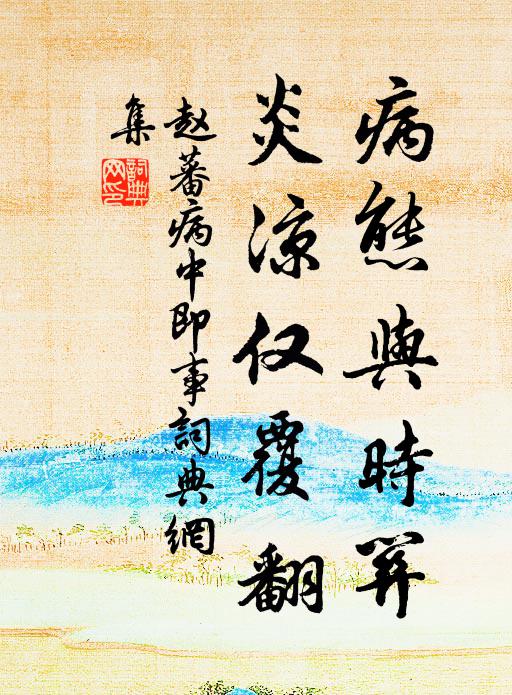 病態與時
炎涼仅覆翻
赵蕃病中即事詞典網
集
詞典网印